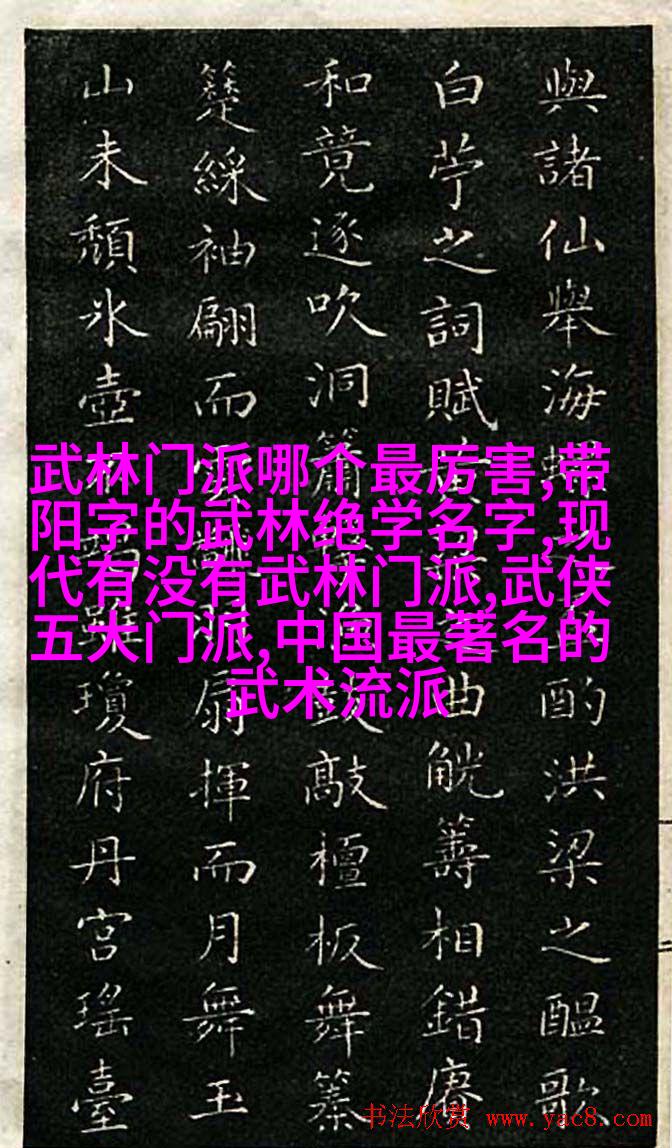 與諸仙舉海酌洪梁之醞歌
白苧之詞賦黃曲觥籌相錯賡
和竟逐吹洞簫鼓敲檀板舞
綵袖翩而雲羽扇揮而月舞玉
山未頹氷壺瓊府丹宮瑤臺
武林门派哪个最厉害,带
阳字的武林绝学名字,现
代有没有武林门派,武侠
五大门派,中国最著名的
武术流派
书法欣赏 www.yac8.com